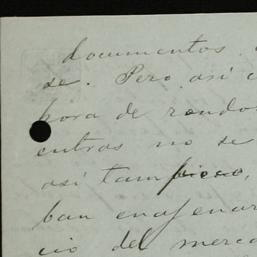 documentos
se. Pero así
hora de
entras no se
así tampoco,
ban enajenar
cio del merca